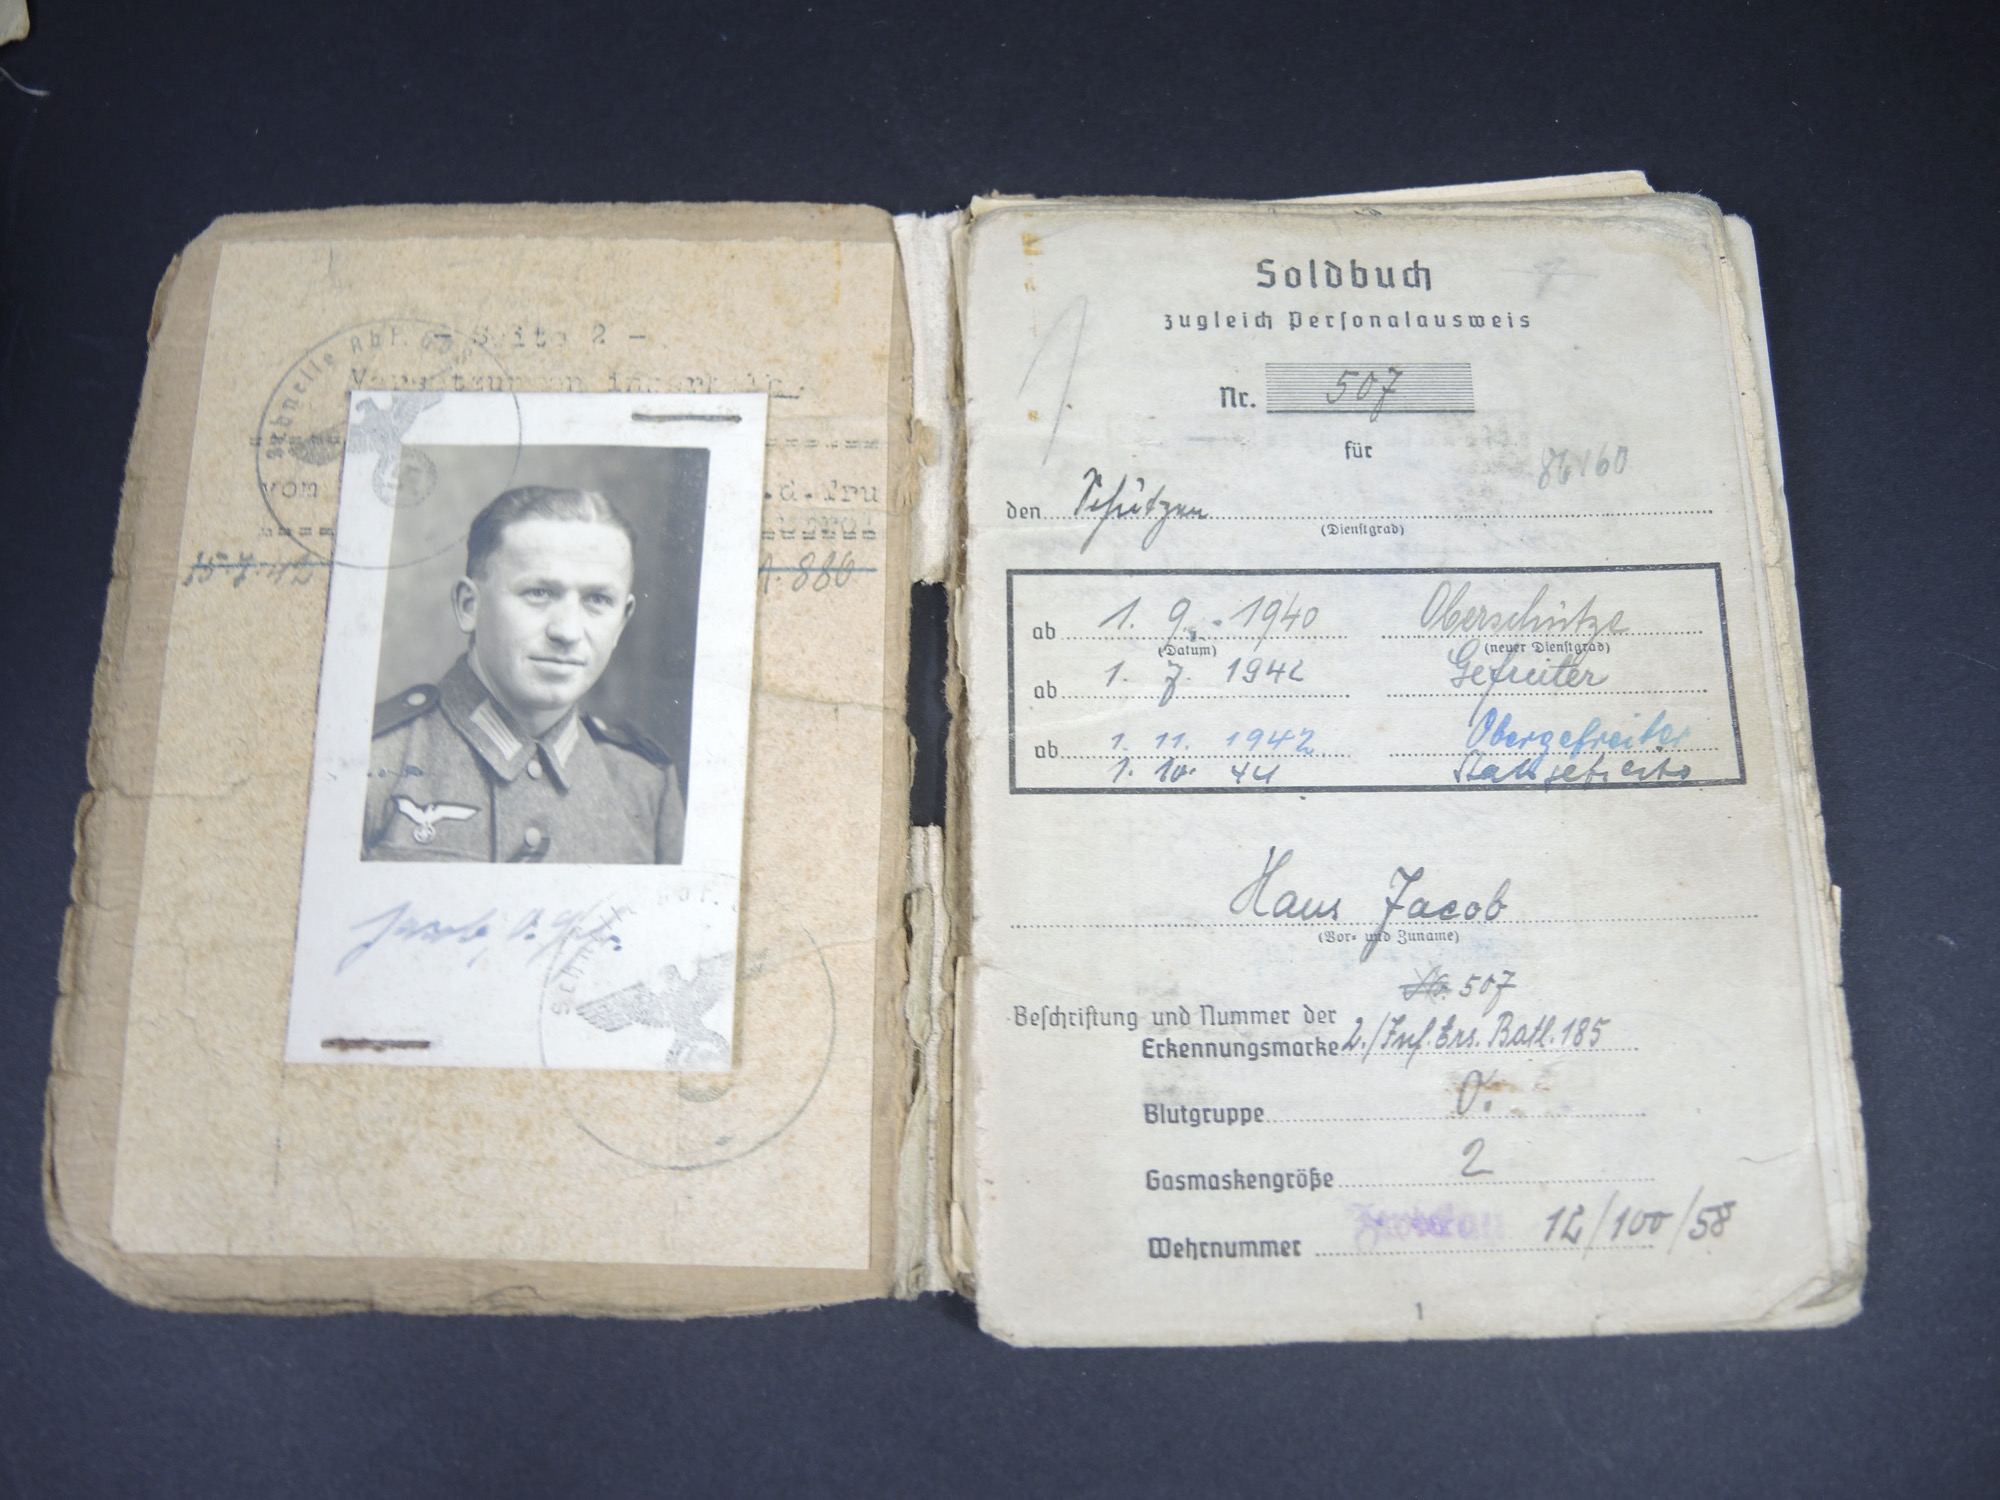 - Seite 2 -
vom
.d.Tru
15.7.42
A. 886
Schnelle Abt.
Jacob, O.Gefr.
Schnelle Abt.
Soldbuch
zugleich Personalausweis
Nr. 507
für
86160
den Schützen
(Dienstgrad)
ab 1. 9. 1940 Oberschütze
(Datum) (neuer Dienstgrad)
ab 1. 7. 1942 Gefreiter
ab 1. 11. 1942 Obergefreiter
1. 10. 44 Stabsgefreiter
Hans Jacob
(Vor- und Zuname)
507
Beschriftung und Nummer der
Erkennungsmarke 2./Inf. Ers. Batl. 185
Blutgruppe O.
Gasmaskengröße 2
Wehrnummer 12/100/58
1